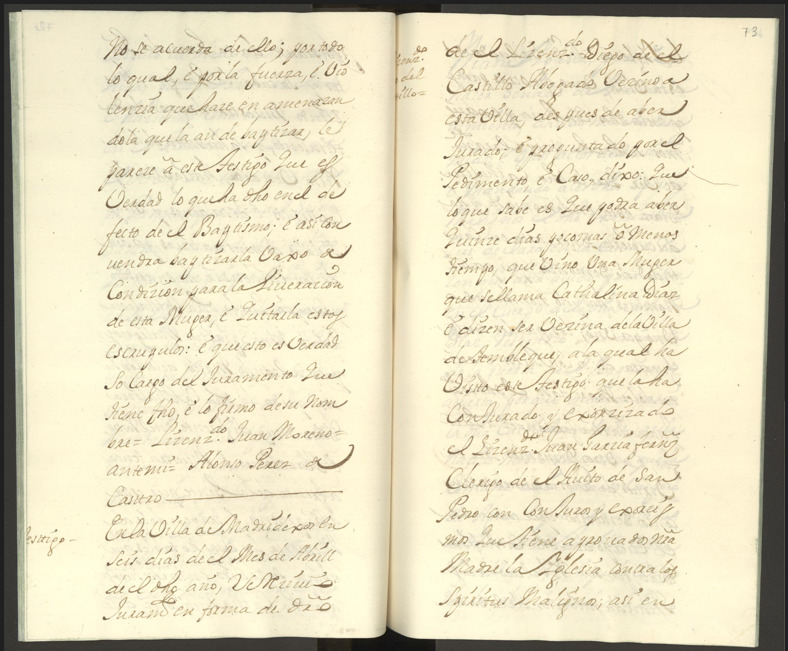 No se acuerda de ello; por todo
lo qual, é por la fuerza, é Vio
lenzia que haze en amenazan
dola que la an de baptizar, le
pareze â este testigo que es
Verdad lo que ha dho en el de
fecto de el Baptismo; é asi con
uendra baptizarla vaxo de
Condizion para la liueracion
de esta Muger, é quitarla estos
escrupulos: é que esto es Verdad
so cargo del Juramento que
tiene fho, é lo firmo de su nom
bre= Lizenz.do Juan Moreno=
antemi= Alonso Perez de
Castro
testigo=
En la Villa de Madridexos en
seis dias de el Mes de Abrill
de el dho año,
Juram.to en forma de dro
73
de el Lizenz.do Diego de el
Castillo Abogado Vezino a
esta Villa, despues de aber
Jurado, é preguntado por el
Pedimento, é Caso, dixo: que
lo que sabe es que podra aber
quinze dias pocomas ô menos
tiempo, que Vino Una Muger
que se llama Cathalina Diaz
é dizen ser Vezina de la Villa
de Tembleque, a la qual ha
Visto este testigo, que la ha
Conjurado y exorzizado
el Lizenz.do Juan Garcia fern.z
Clerigo de el Auito de San
Pedro con Conjuros y exorcis
mos que tiene aprouados nra
Madre la Yglesia contra los
spiritus Malignos; asi en